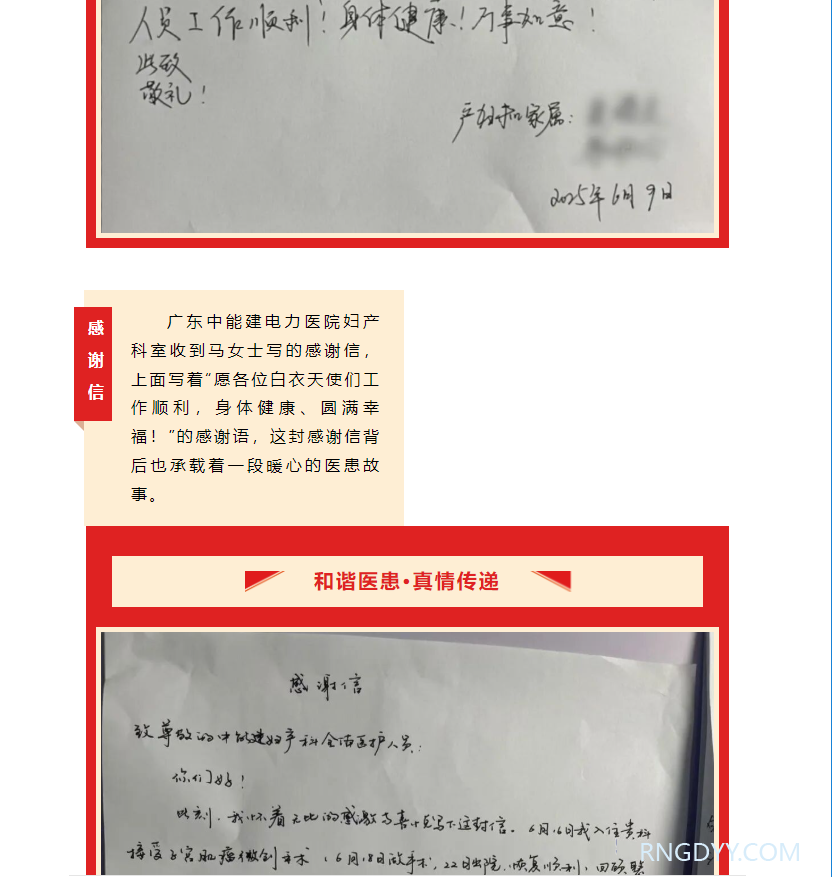 人员工作顺利！身体健康！万事如意！
此致
敬礼！
产妇和家属：
2025年6月9日
感谢信
广东中能建电力医院妇产
科室收到马女士写的感谢信，
上面写着“愿各位白衣天使们工
作顺利，身体健康、圆满幸
福！”的感谢语，这封感谢信背
后也承载着一段暖心的医患故
事。
和谐医患·真情传递
感谢信
致尊敬的中能建妇产科全体医护人员：
你们好！
此刻，我怀着无比的感激与喜悦写下这封信。6月16日我入住贵科
接受子宫肌瘤微创手术，6月18日做手术，22日出院，恢复顺利，回顾
RNGDYY.COM